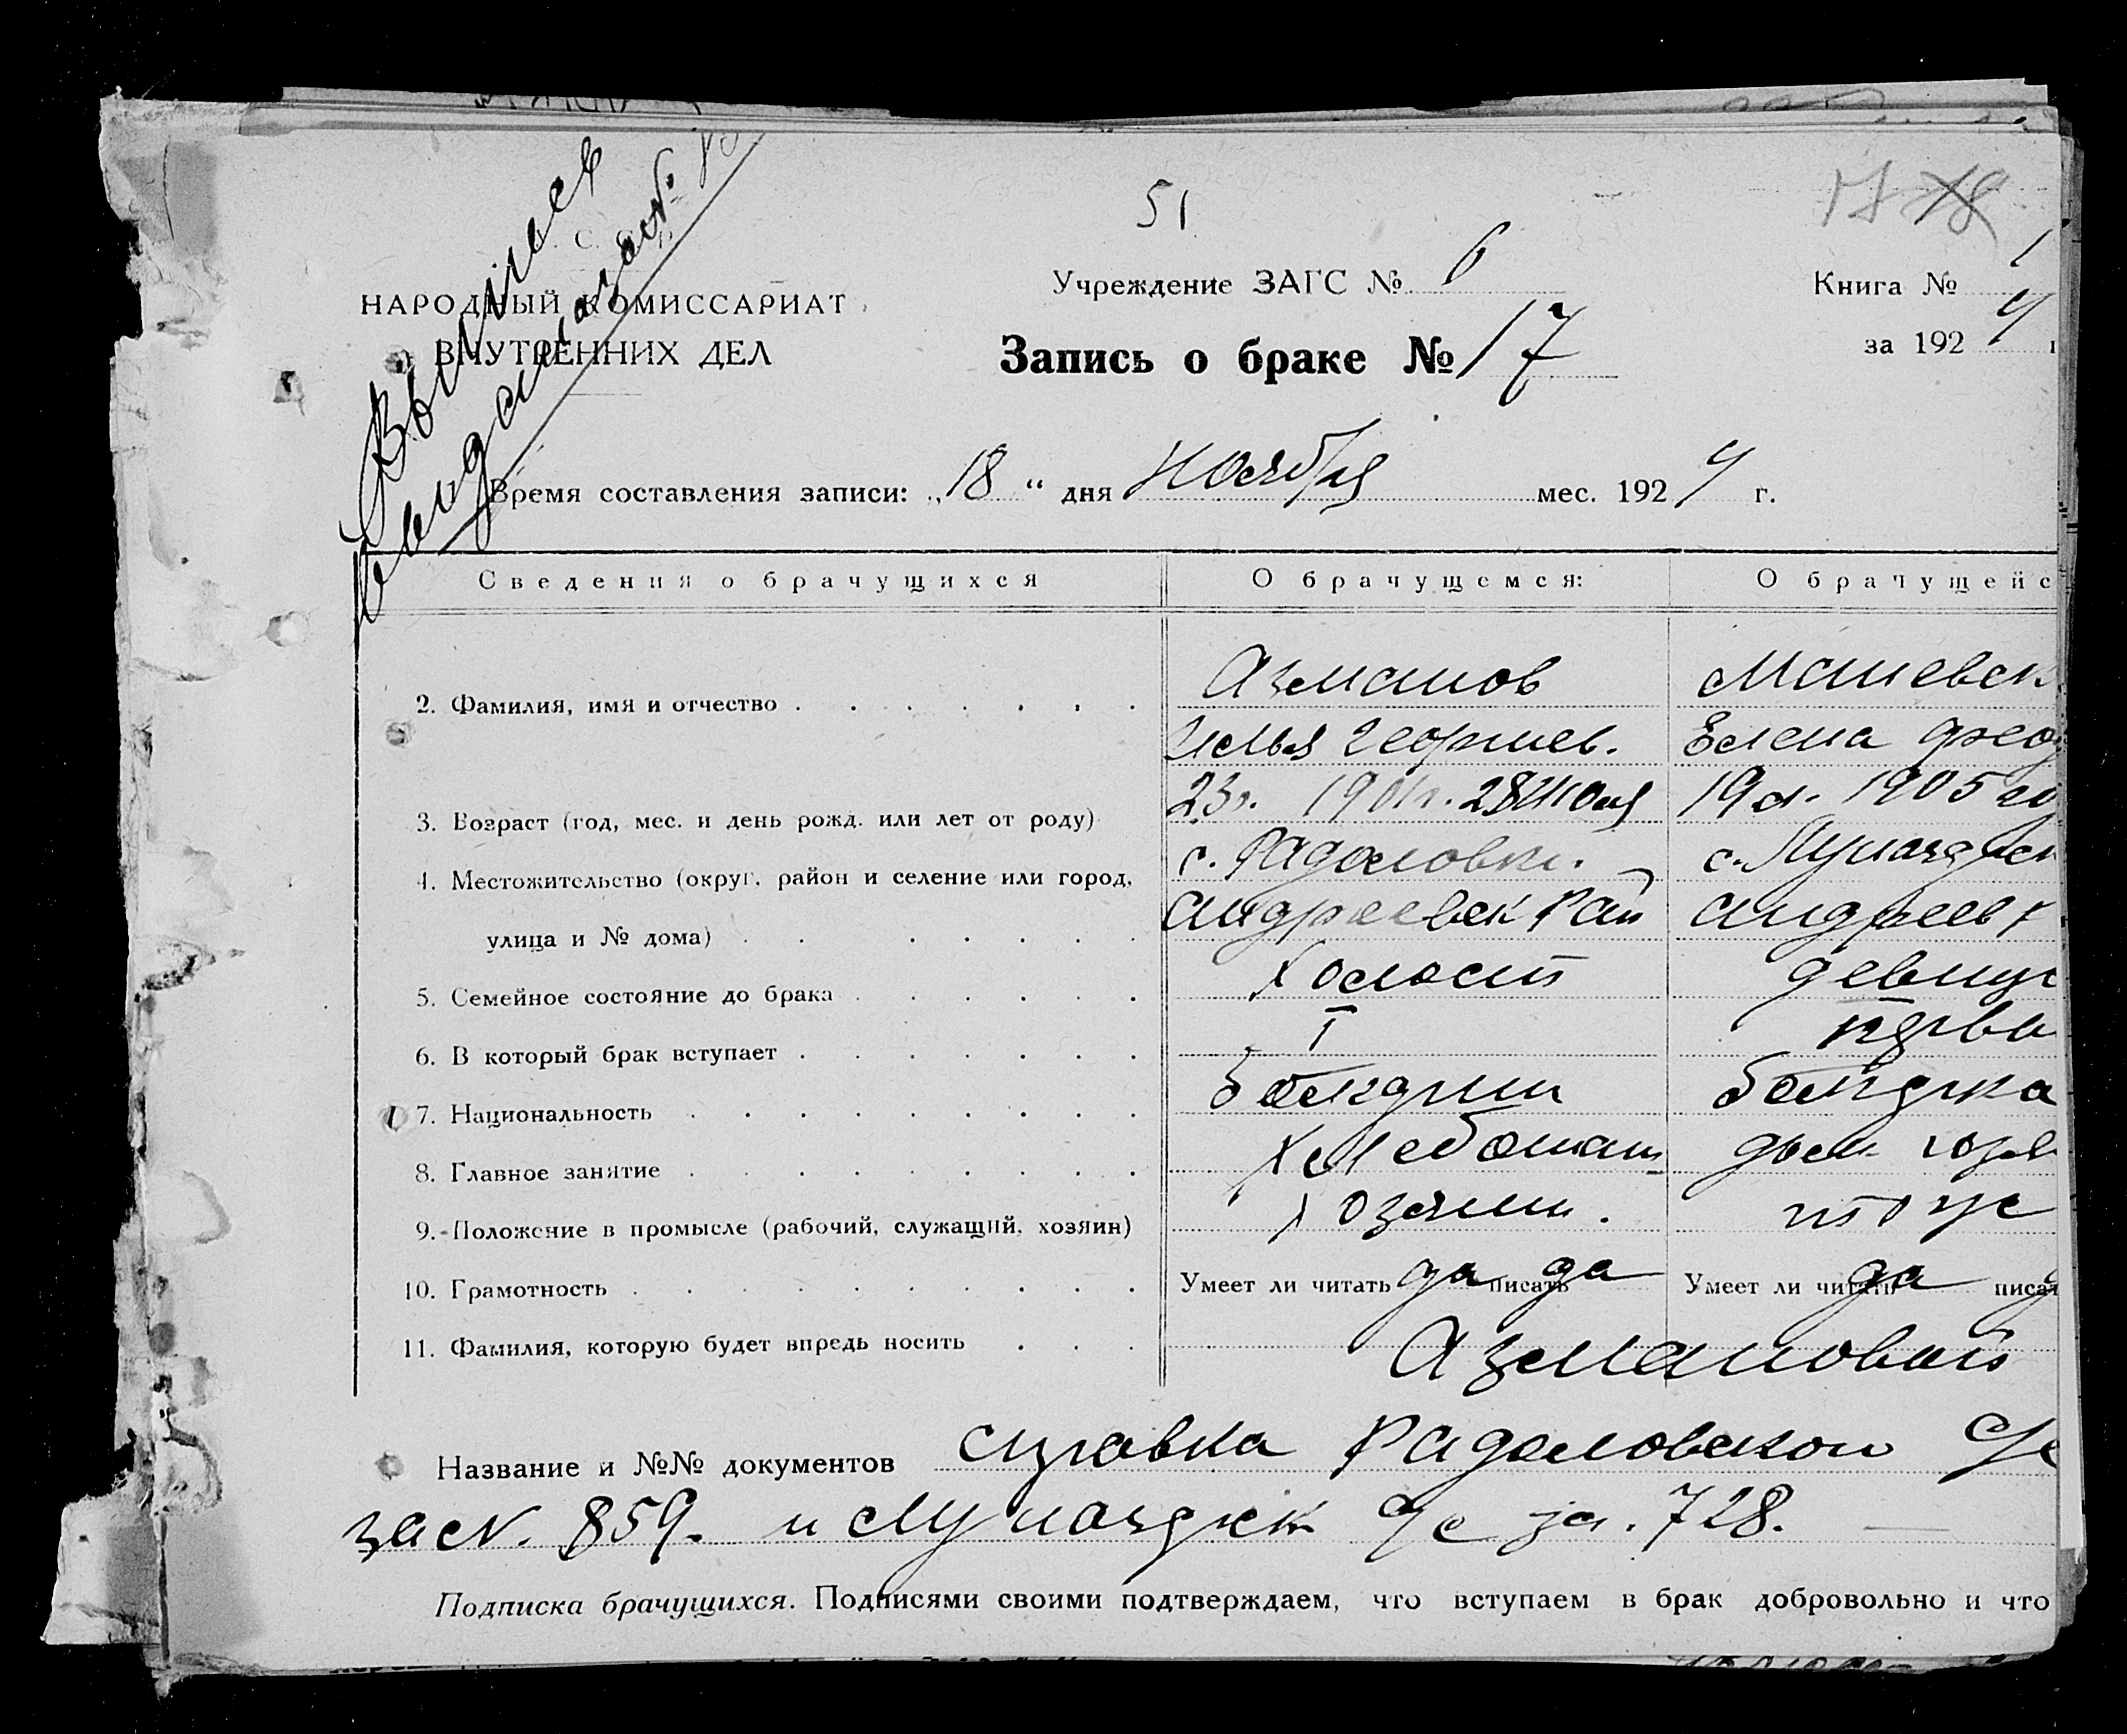 51
17 18
НАРОДНЫЙ КОМИССАРИАТ
ВНУТРЕННИХ ДЕЛ
Учреждение ЗАГС № 6
Книга № 1
Запись о браке № 17
за 1924
Время составления записи: „18“ дня Ноября мес. 1924 г.
Сведения о брачущихся О брачущемся: О брачущейс
2. Фамилия, имя и отчество Азманов
Илья Георгиев. Елена Фео
3. Возраст (год, мес. и день рожд. или лет от роду) 23г. 1901г. 28 Июля 19л. 1905 го
4. Местожительство (округ, район и селение или город, с. Радоловки. с.
улица и № дома) Андреевск Рай Андреев
5. Семейное состояние до брака Холост девиц
6. В который брак вступает I перв
7. Национальность Болгрин болгрка
8. Главное занятие Хлебопаш дом. хозя
9. Положение в промысле (рабочий, служащий, хозяин) Хозяин. тоже
10. Грамотность Умеет ли читать да писать да Умеет ли читать да писат
11. Фамилия, которую будет впредь носить Азмановой
Название и №№ документов справка Радоловской с/с
за №. 859. и с/с за. 728.
Подписка брачущихся. Подписями своими подтверждаем, что вступаем в брак добровольно и что